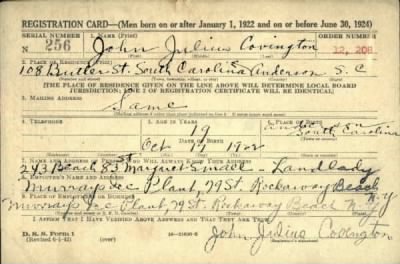 REGISTRATION CARD—(Men born on or after January 1, 1922 and on or before June 30, 1924)
SERIAL NUMBER 1. NAME (Print) ORDER NUMBER
N 256 John Julius Covington 12,208
2. PLACE OF RESIDENCE (Print)
108 Butler St. South Carolina Anderson S.C
[THE PLACE OF RESIDENCE GIVEN ON THE LINE ABOVE WILL DETERMINE LOCAL BOARD
JURISDICTION; LINE 2 OF REGISTRATION CERTIFICATE WILL BE IDENTICAL]
3. MAILING ADDRESS
Same
4. TELEPHONE 5. AGE IN YEARS 6. PLACE OF BIRTH
19
DATE OF BIRTH South Carolina
Oct 17
7. NAME AND ADDRESS OF PERSON WHO WILL ALWAYS KNOW YOUR ADDRESS
243 Beach 85 St Margaret Small Landlady
8. EMPLOYER'S NAME AND ADDRESS
Murrays Ice Plant, 79 St. Rockaway Beach N.Y
9. PLACE OF EMPLOYMENT OR BUSINESS
Murrays Ice Plant, 79 St. Rockaway Beach N.Y.
I AFFIRM THAT I HAVE VERIFIED ABOVE ANSWERS AND THAT THEY ARE TRUE.
D. S. S. Form 1
(Revised 6-1-42)
John Julius Covington